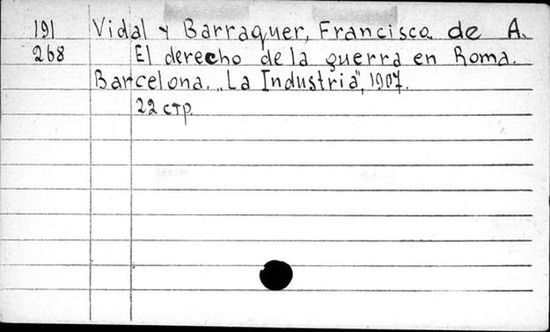 191 Vidal y Barraquer, Francisco de A.
268 El derecho de la guerra en Roma.
Barcelona. „La Industria", 1907.
22 стр.